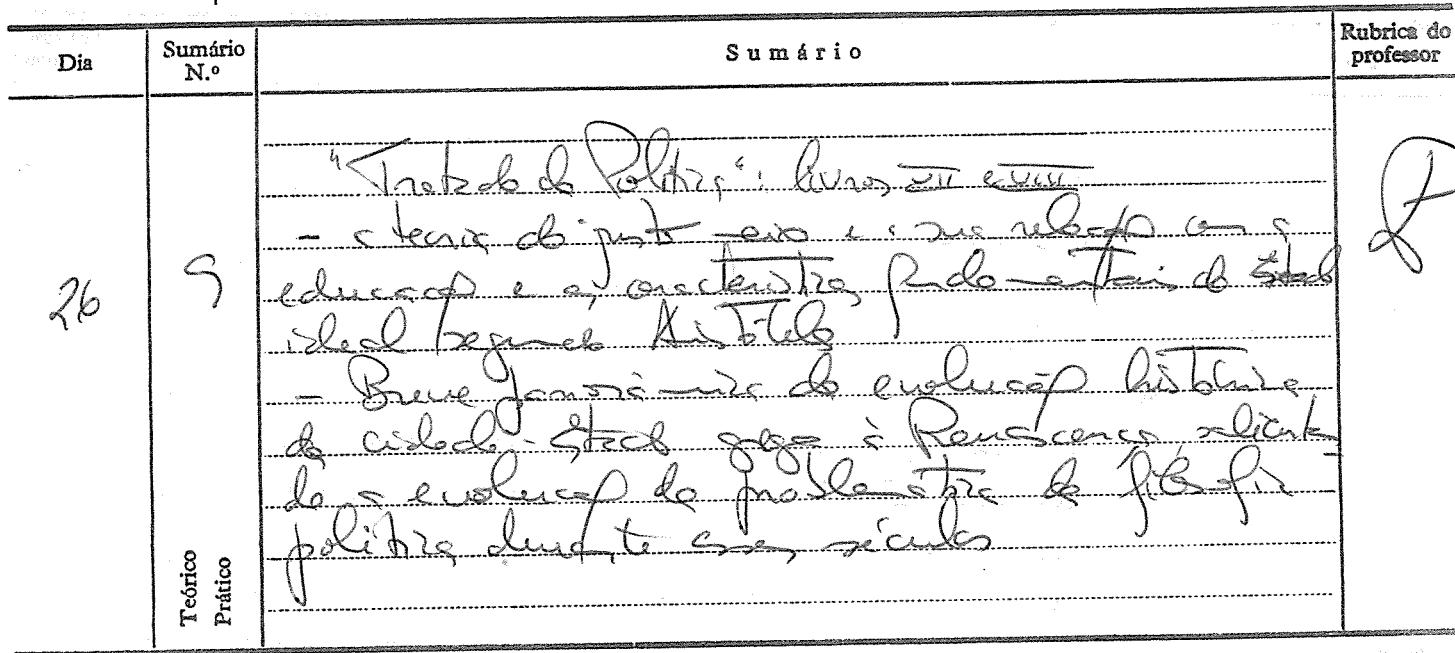 Dia
Sumário N.º
Sumário
Rubrica do professor
26
9
"Tratado da Política": livros VII e VIII
- a teoria do justo meio e a sua relação com a
educação e as características fundamentais do Estado
ideal segundo Aristóteles
- Breve panorâmica da evolução histórica
da cidade-Estado grega à Renascença salientan-
do a evolução da problemática da filosofia
política durante esses séculos
Teórico
Prático